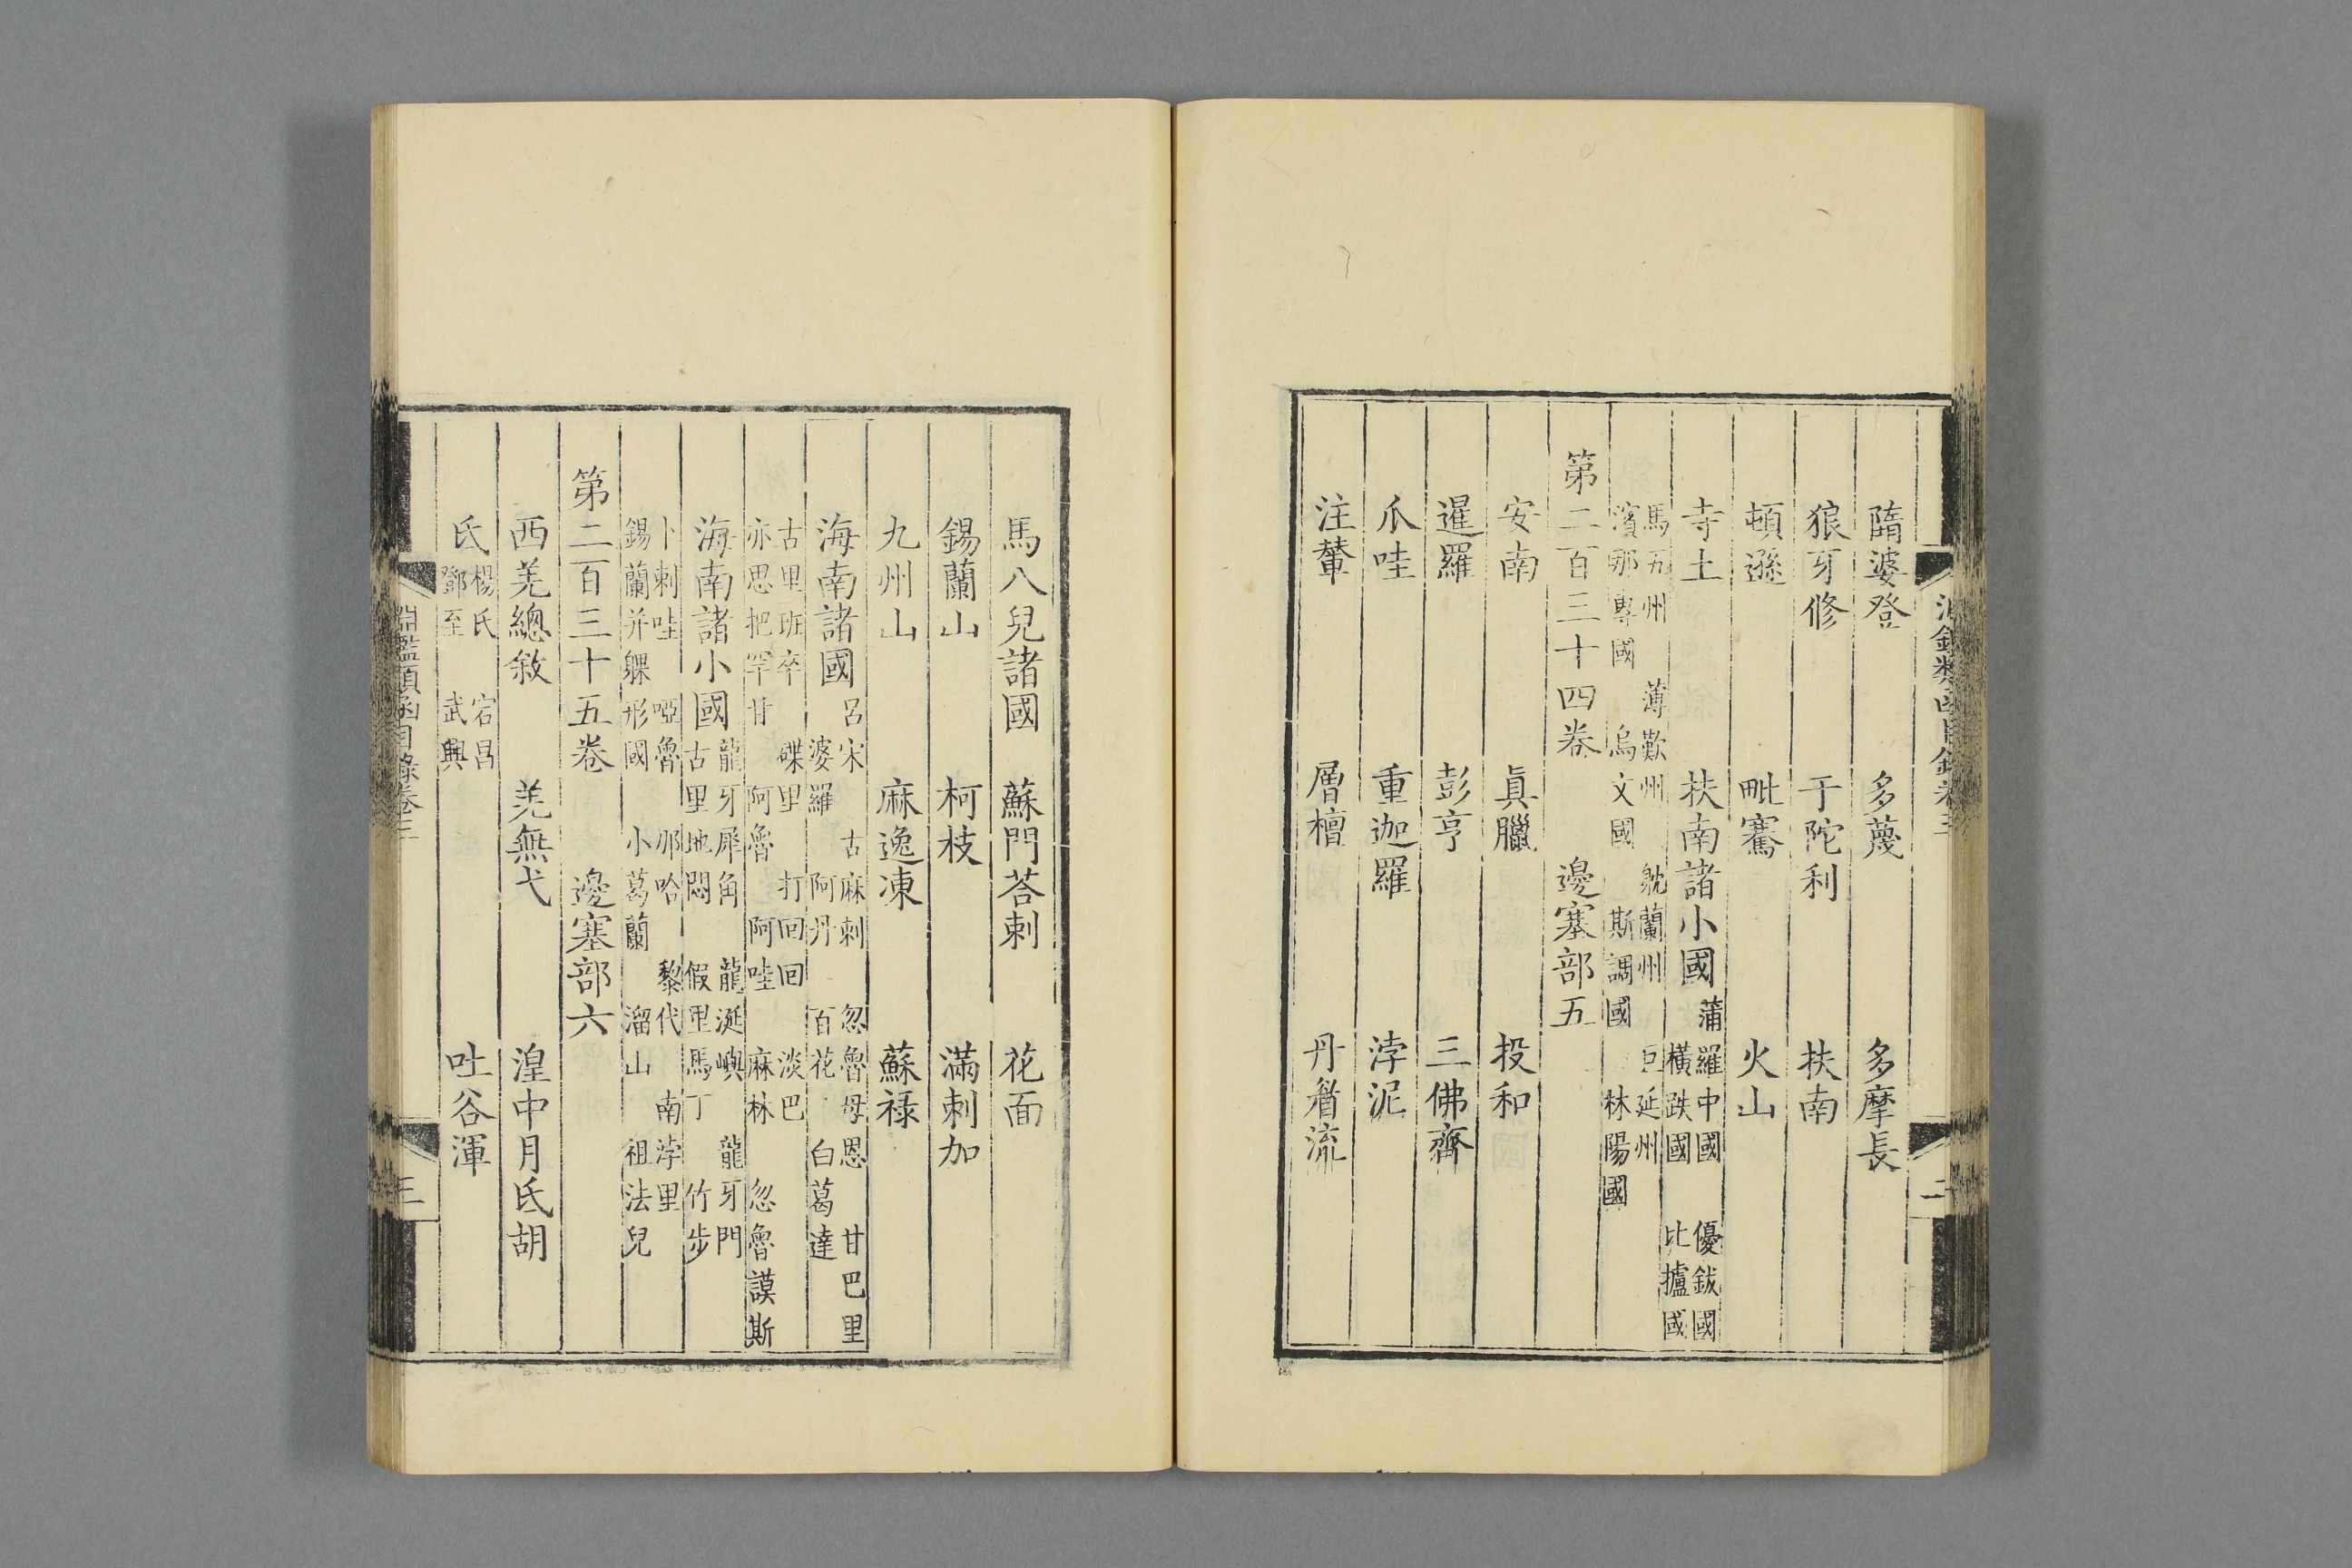 隋婆登　多蔑　多摩長
狼牙修　干陀利　扶南
頓遜　毗騫　火山
寺土　扶南諸小國　蒲羅中國　優鈸國
橫跌國　比攎國
馬五州　薄歎州　躭蘭州　巨延州
濱那專國　烏文國　斯調國　林陽國
第二百三十四卷　邊塞部五
安南　眞臘　投和
暹羅　彭亨　三佛齊
爪哇　重迦羅　浡泥
注輦　層檀　丹眉流
馬八兒諸國　蘇門荅剌　花面
錫蘭山　柯枝　滿剌加
九州山　麻逸凍　蘇祿
海南諸國　呂宋　古麻剌　忽魯母恩　甘巴里
婆羅　阿丹　百花　白葛達
古里班卒　碟里　打回回　淡巴
亦思把罕　甘　阿魯　阿哇　麻林　忽魯謨斯
海南諸小國　龍牙犀角　龍涎嶼　龍牙門
古里地悶　假里馬丁　竹步
卜剌哇　啞魯　那哈　黎代　南浡里
錫蘭并躶形國　小葛蘭　溜山　祖法兒
第二百三十五卷　邊塞部六
西羌總敘　羌無弋　湟中月氏胡
氐　楊氏　宕昌　吐谷渾
鄧至　武興
淵鑑類函目錄卷三　三